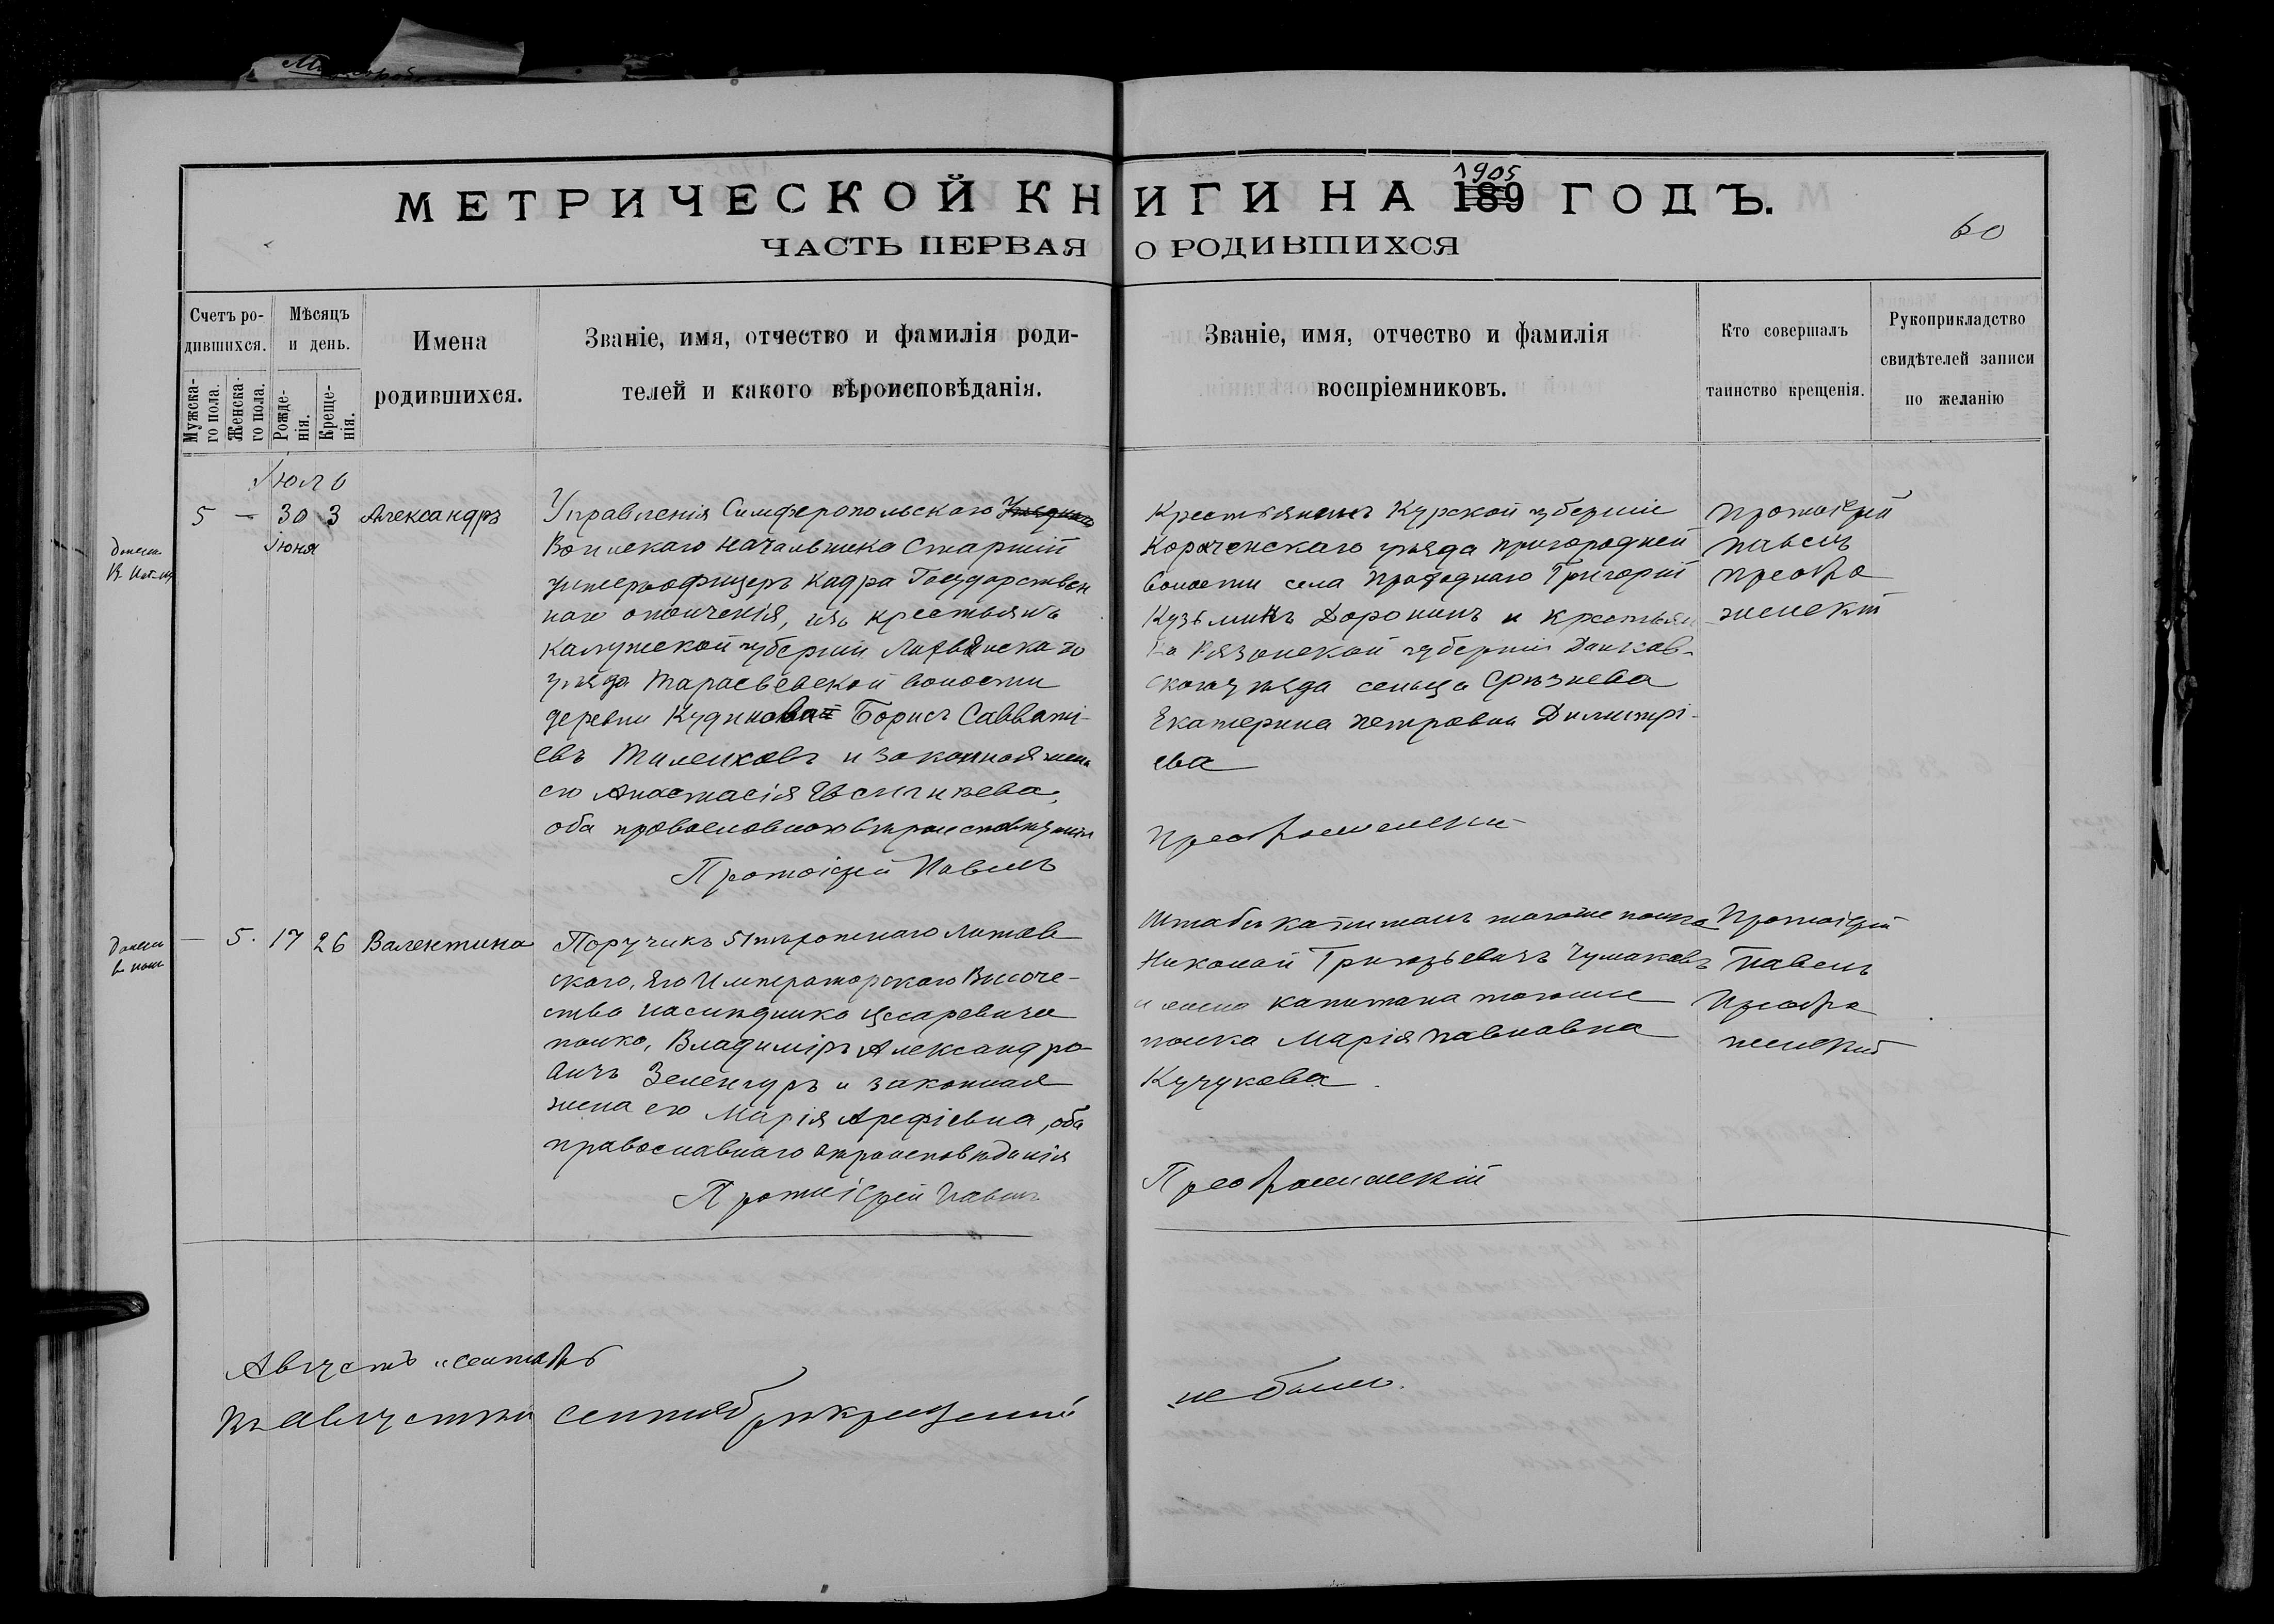 МЕТРИЧЕСКОЙ КНИГИ НА 189 ГОДЪ.
1905
ЧАСТЬ ПЕРВАЯ О РОДИВШИХСЯ
60
Счетъ ро-
дившихся.
Мужска-
го пола.
Женска-
го пола.
Мѣсяцъ
и день.
Рожде-
нія.
Креще-
нія.
Имена
родившихся.
Званіе, имя, отчество и фамилія роди-
телей и какого вѣроисповѣданія.
Званіе, имя, отчество и фамилія
воспріемниковъ.
Кто совершалъ
таинство крещенія.
Рукоприкладство
свидѣтелей записи
по желанію
Іюль
5 — 30 3 Александръ
Іюня
Управленія Симферопольскаго Уѣзднаго
Воинскаго Начальника Старшій
унтеръ офицеръ Кадра Государствен
наго ополченія, изъ крестьянъ
Калужской губерніи Лихвинскаго
уѣзда Тарасьевской волости
деревни Кудиновой Борисъ Саввати-
евъ Тиленковъ и законная жена
его Анастасія Евсигнѣева,
оба православнаго вѣроисповѣданія
Протоіерей Павелъ
Крестьянинъ Курской губерніи
Короченскаго уѣзда пригородней
волости села Григорій
Кузьминъ Доронинъ и крестьян
ка Рязанской губерніи Данков-
скаго уѣзда сельца Срѣзнева
Екатерина Петровна Димитрі-
ева
Преображенскій
Протоіерей
Павелъ
Преобра
женскій
— 5. 17 26 Валентина
Поручикъ 51 пѣхотнаго Литов
скаго, Его Императорскаго Высоче-
ства Наслѣдника Цесаревича
полка, Владиміръ Александро-
вичъ Зеленгуръ и законная
жена его Марія Арефіевна, оба
православнаго вѣроисповѣданія
Протоіерей Павелъ
Штабсъ капитанъ тогоже полка
Николай Григорьевичъ Чумаковъ
и жена капитана тогоже
полка Марія Павловна
Кучукова.
Преображенскій
Протоіерей
Павелъ
Преобра
женскій
Августъ и сентябрь
Въ Августѣ и сентябрѣ крещеній
не было.